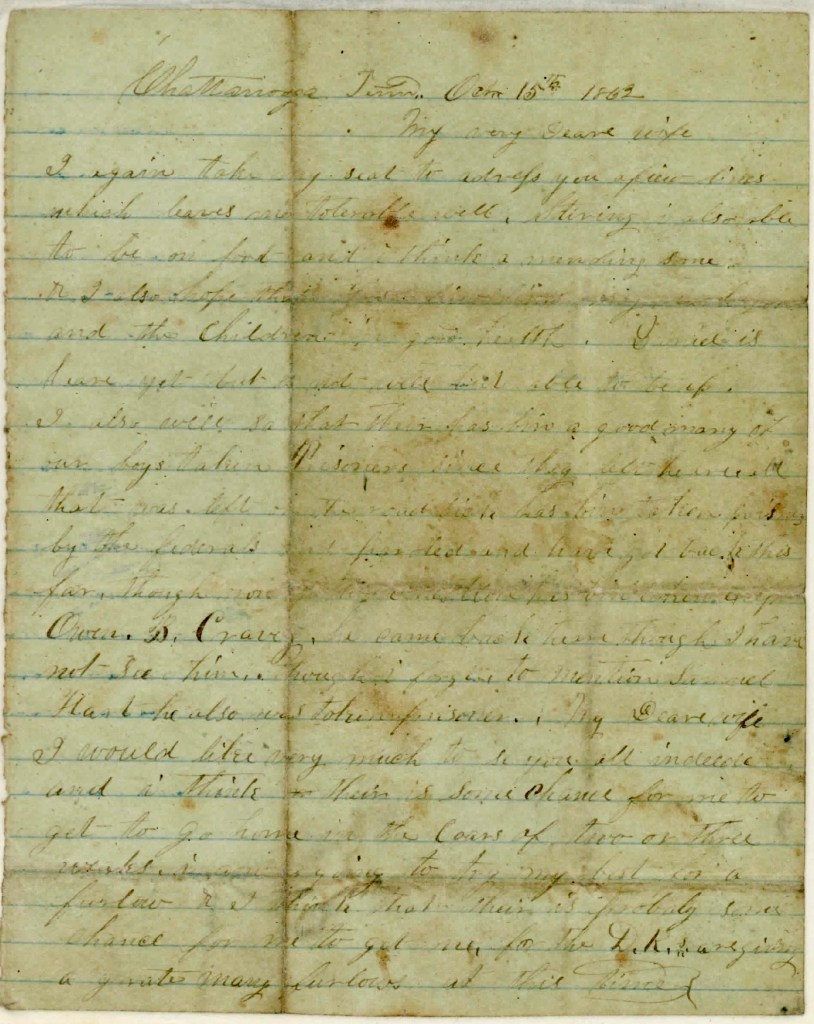 Chattanooga Tenn. Octr 15th 1862
My very Deare wife
I again take my seat to adress you a fiew lines
which leaves me tolerable well, Stiring i also able
to be on foot and i think a mending some
& I also hope that
and the Children in good health. David is
heare yet but is not well but able to be up.
I also will sa that their has bin a good many of
our boys taken Prisoners since they left heare all
that was left on the road sick has bin taken
by the federals and parroled and have got back this
far, though
Owen. D. Craven, he came back here though I have
not See him. though i forgot to mention Samuel
he also was taken prisoner. My Deare wife
I would like very much to se you all indeede
and i think their is some chance for me to
get to go home in the Coars of two or three
weeks i am going to try my best for a
furlow & I think that their is probaly some
chance for me to get one, for the D.R.s are giving
a grate many furlows at this time